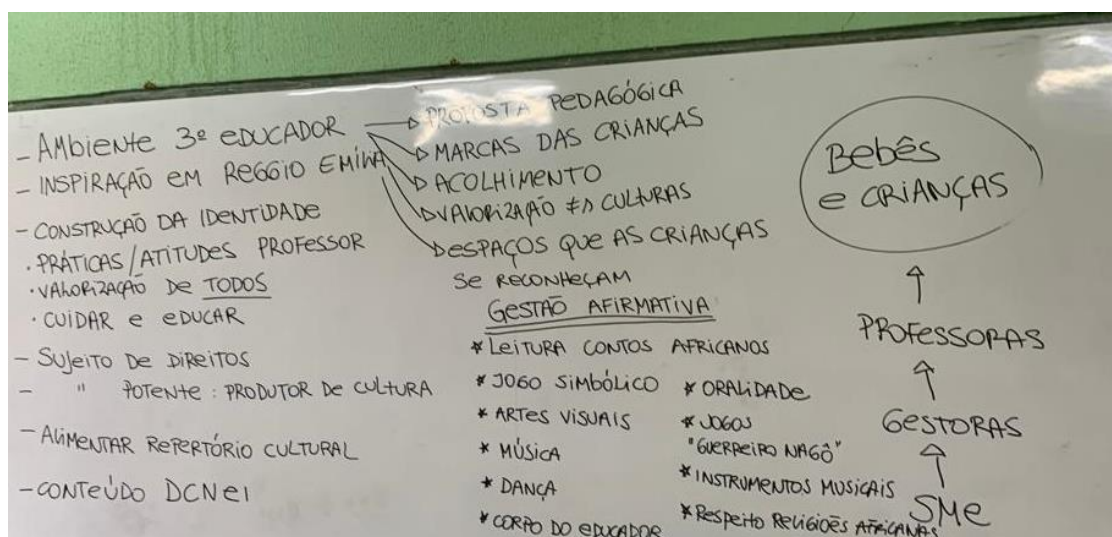 - AMBIENTE 3º EDUCADOR
- INSPIRAÇÃO EM REGGIO EMÍLIA
- CONSTRUÇÃO DA IDENTIDADE
· PRÁTICAS/ATITUDES PROFESSOR
· VALORIZAÇÃO DE TODOS
· CUIDAR e EDUCAR
- SUJEITO DE DIREITOS
- " POTENTE: PRODUTOR DE CULTURA
- ALIMENTAR REPERTÓRIO CULTURAL
- CONTEÚDO DCNEI
PROPOSTA PEDAGÓGICA
MARCAS DAS CRIANÇAS
ACOLHIMENTO
VALORIZAÇÃO ≠s CULTURAS
ESPAÇOS QUE AS CRIANÇAS
SE RECONHEÇAM
GESTÃO AFIRMATIVA
* LEITURA CONTOS AFRICANOS
* JOGO SIMBÓLICO
* ARTES VISUAIS
* MÚSICA
* DANÇA
* CORPO DO EDUCADOR
* ORALIDADE
* JOGOS
"GUERREIRO NAGÔ"
* INSTRUMENTOS MUSICAIS
* RESPEITO RELIGIÕES AFRICANAS
BEBÊS
e CRIANÇAS
PROFESSORAS
GESTORAS
SME